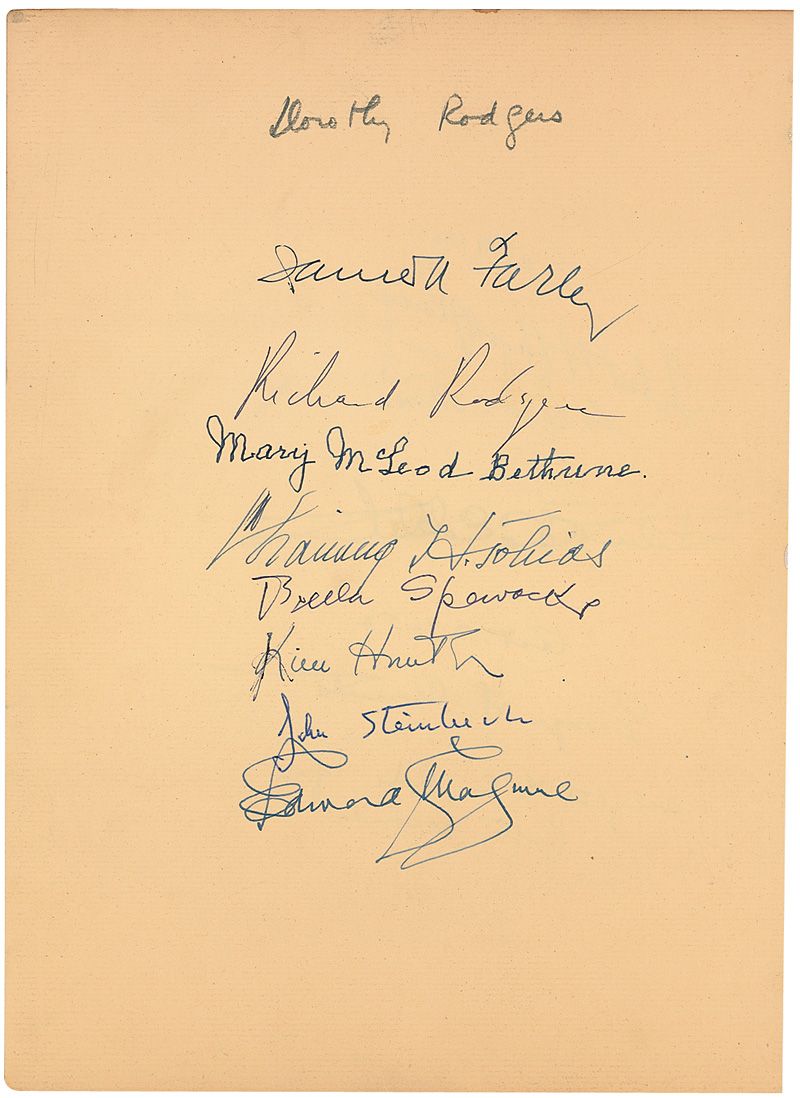 Dorothy Rodgers
James A Farley
Richard Rodgers
Mary McLeod Bethune.
Channing H. Tobias
Bella Spewack
Kim Hunter
John Steinbeck
Edward Maguire